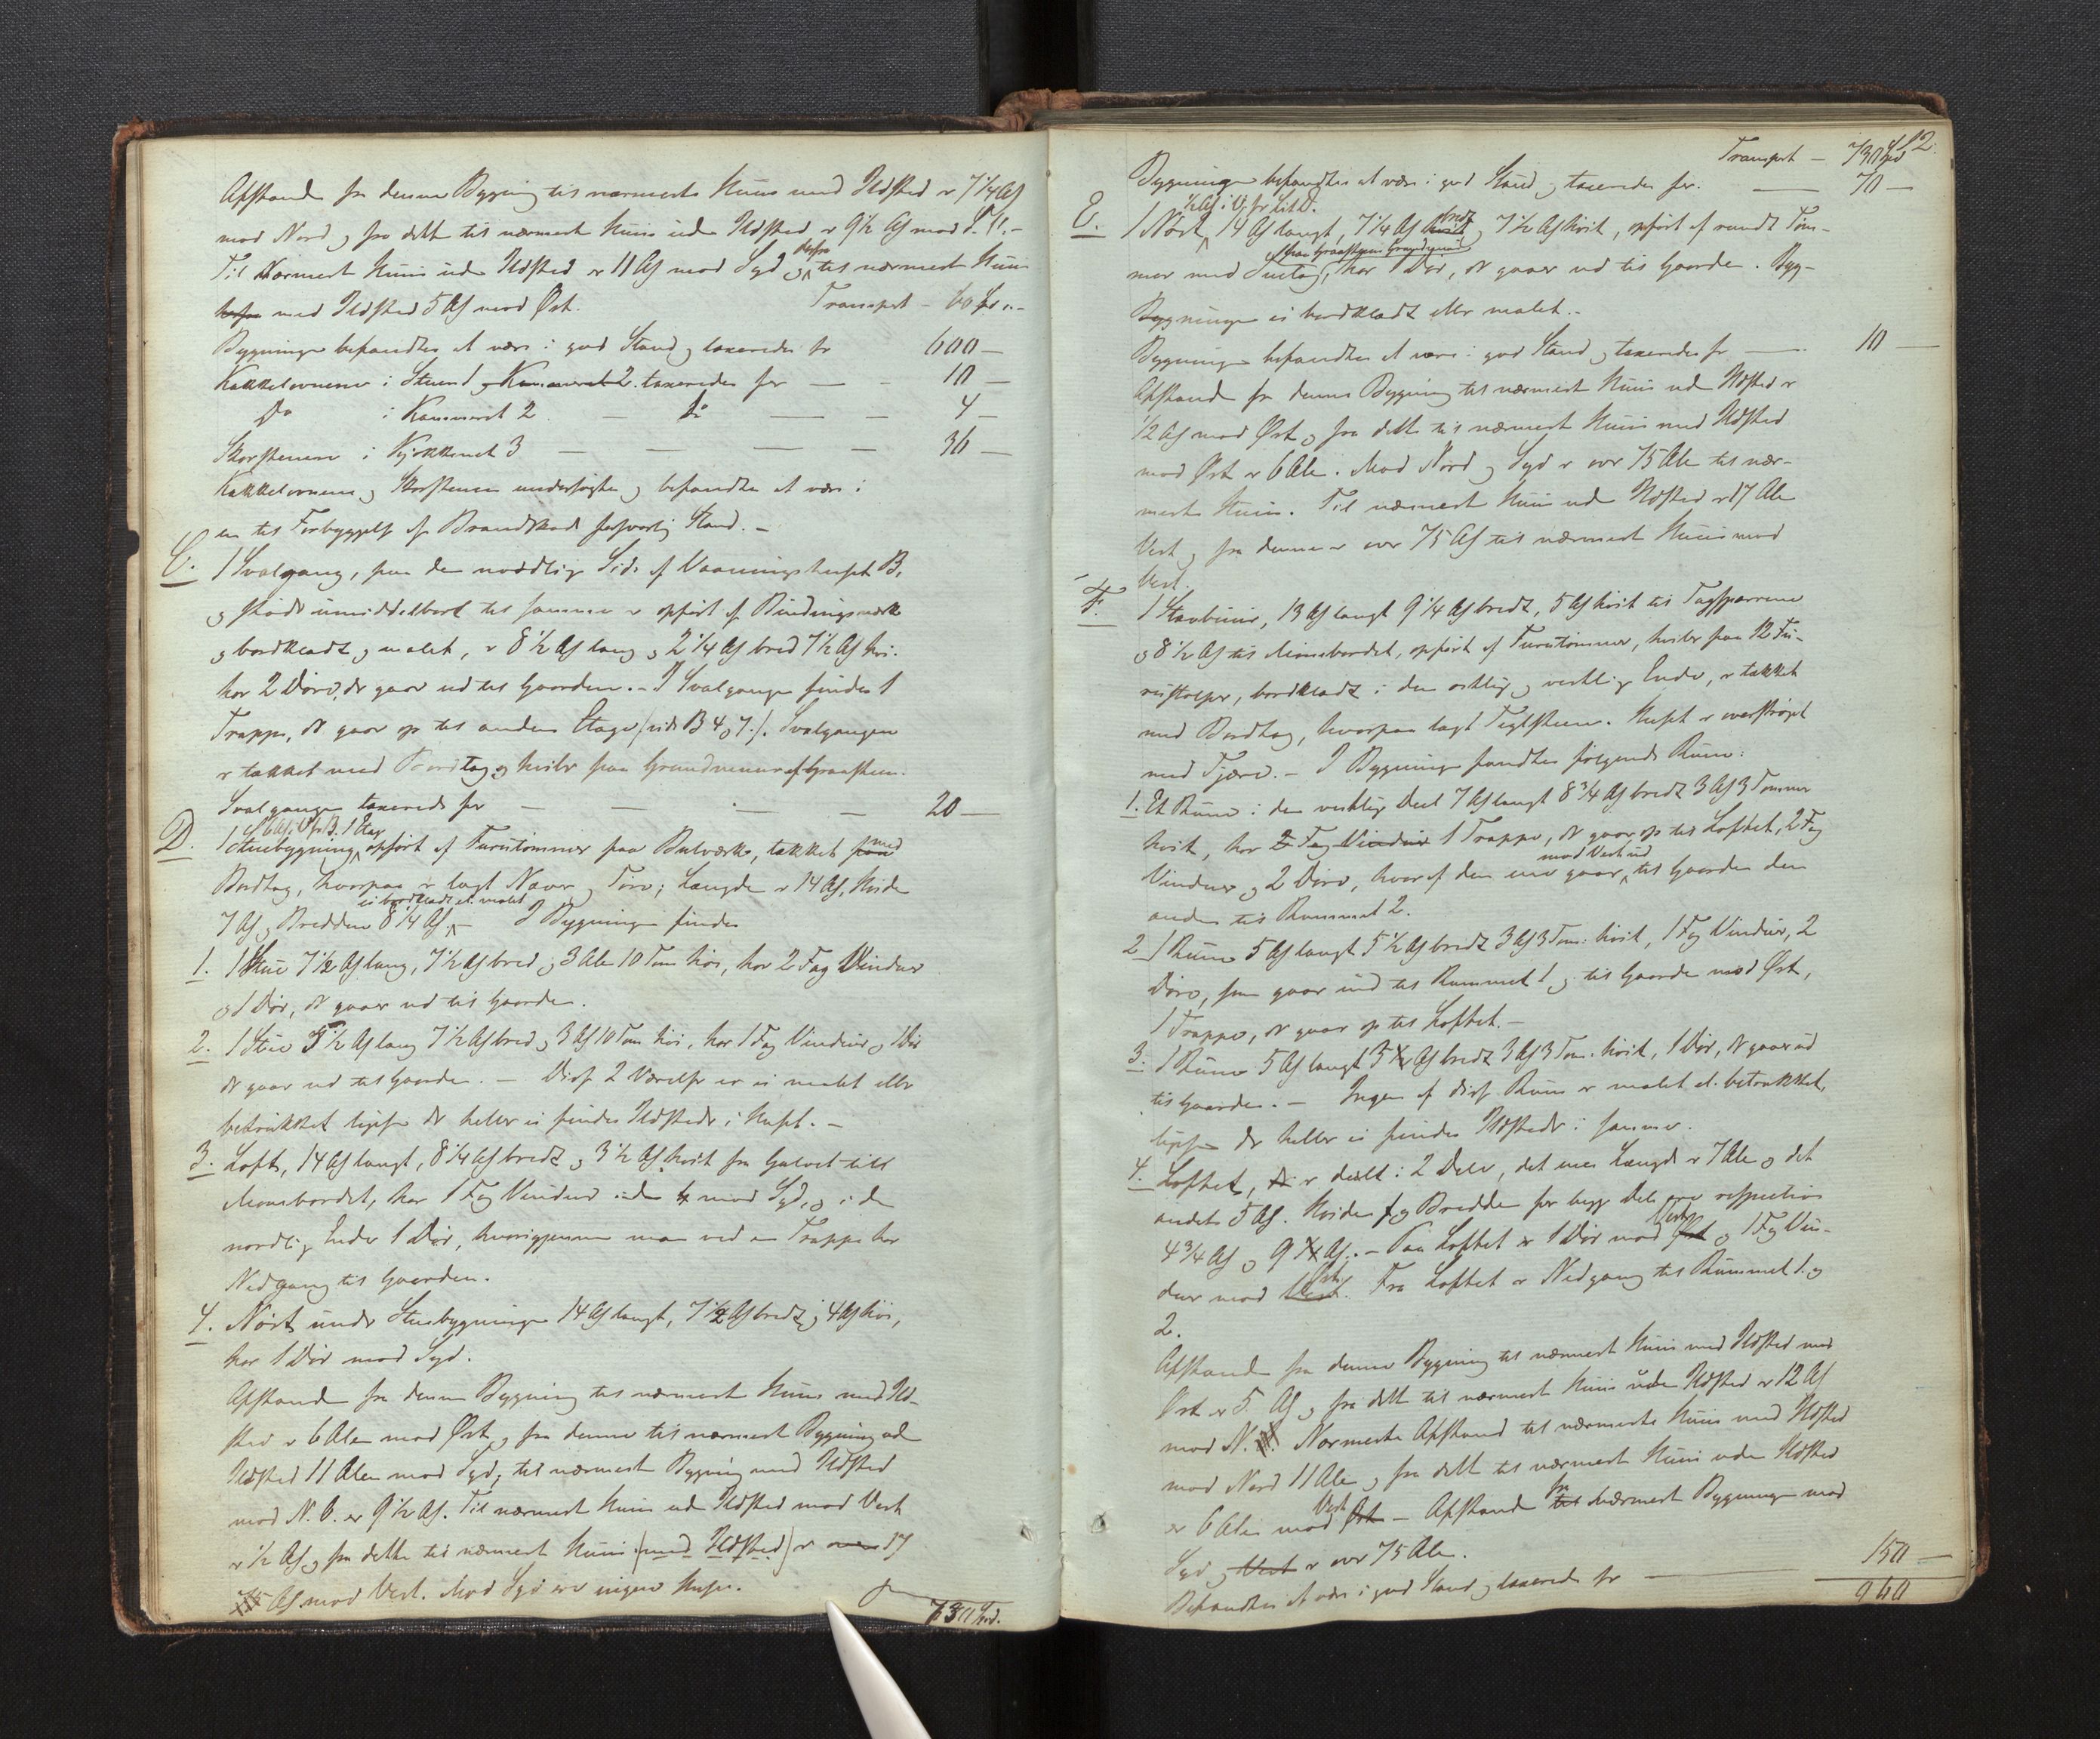 Afstand fra denne Bygning til nærmeste Huus med Ildsted er 7 1/4 Al
mod Nord og fra dette til nærmeste Huus uden Ildsted er 9 1/2 Al mod
Til Nærmeste Huus uden Ildsted er 11 Al mod Syd og derfra til nærmeste Huus
med Ildsted 5 Al mod Øst. Transport - 60 Spd
Bygningen befandtes at være i god Stand og taxeredes for 600 -
Kakkelovnene i Stuen 1 og Kammeret 2. taxeredes for - - 10 -
Do i Kammeret 2 - do - - 4 -
Skorstenen i Kjøkkenet 3 - - - - 36 -
Kakkelovnene og Skorstenen undersøgtes og befandtes at være i
en til Forbyggelse af Brandskade forsvarlig Stand. -
C. 1 Svalgang, paa den nordlige Side af Vaaningshuset B,
og stødt umiddelbart til samme er opført af Bindingsværk
og bordklædt og malet, er 8 1/2 Al lang og 2 1/4 Al bred 7 1/2 Al høi.
har 2 Døre, der gaar ud til Gaarden. - I Svalgangen findes 1
Trappe, der gaar op til anden Etage (vide B 4 og 7.). Svalgangen
er tækket med Bordtag og hviler paa Grundmuur af Graasteen.
Svalgangen taxeredes for - - - - 20 -
D. 1 Stuebygning, opført af Furutømmer paa Bulværk, tækket med
Bordtag, hvorpaa er lagt Næver og Torv; Længden er 14 Al, Høiden
ei bordklædt el. malet
7 Al og Bredden 8 1/4 Al. - I Bygningen findes
1. 1 Stue 7 1/2 Al lang, 7 1/2 Al bred og 3 Alen 10 Tom høi, har 2 Fag Vinduer
og 1 Dør, der gaaer ud til Gaarden.
2. 1 Stue 5 1/2 Al lang 7 1/2 Al bred og 3 Al 10 Tom høi, har 1 Fag Vinduer og 1 Dør
der gaar ud til Gaarden. - Disse 2 Værelser er ei malet eller
betrukket ligesom der heller ei findes Ildsteder i Huset. -
3. Loft, 14 Al langt, 8 1/4 Al bredt og 3 1/2 Al høit fra Gulvet till
Mønsbordet, har 1 Fag Vinduer mod Syd, og i den
nordlige Ende 1 Dør, hvorigjennem man ved en Trappe har
Nedgang til Gaarden.
4. Nøst under Stuebygningen 14 Al langt, 7 1/2 Al bredt og 4 Al høi,
har 1 Dør mod Syd.
Afstand fra denne Bygning til nærmeste Huus med Ild-
sted er 6 Alen mod Øst og fra denne til nærmeste Bygning uden
Ildsted 11 Alen mod Syd, til nærmeste Bygning med Ildsted
mod N. O. er 9 1/2 Al. Til nærmest Huus uden Ildsted mod Vest
er 1/2 Al og fra dette til nærmest Huus (med Ildsted) er over 17
Al mod Vest. Mod Syd ere ingen Huse.
730 Spd.
12.
Transport - 730 Spd
Bygningen befandtes at være i god Stand og taxeredes for. - 70 -
E. 1 Nøst, 14 Al langt, 7 1/4 Al bredt og 7 1/2 Al høit, opført af rundt Töm-
mer med Suetag, har 1 Dør, der gaaer ud til Gaarden. Byg-
Bygningen ei bordklædt eller malet. -
Bygningen befandtes at være i god Stand og taxeredes for - 10 -
Afstand fra denne Bygning til nærmest Huus uden Ildsted er
1/2 Al mod Øst og fra dette til nærmest Huus med Ildsted
mod Øst er 6 Alen. Mod Nord og Syd er over 75 Alen til nær-
meste Huus. Til nærmest Huus uden Ildsted er 17 Alen
Vest og fra denne er over 75 Al til nærmest Huus mod
Vest.
F. 1 Stavbuur, 13 Al langt 9 1/4 Al bredt, 5 Al høit til Tagsparrene
og 8 1/2 Al til Mønsbordet, opført af Furutömmer, hviler paa 12 Fu-
rustolper, bordklædt i den østlige og vestlige Ende, er tækket
med Bordtag, hvorpaa lagt Teglsteen. Huset er overstrøget
med Tjære. - I Bygningen fandtes følgende Rum:
1. Et Rum i den vestlige Deel 7 Al langt 8 3/4 Al bredt 3 Al 3 Tommer
høit, har 2 Fag Vinduer 1 Trappe, der gaar op til Loftet, 2 Fag
Vinduer og 2 Døre, hvoraf den ene gaar mod Vest ud til Gaarden den
anden til Rummet 2.
2. 1 Rum 5 Al langt 5 1/2 Al bredt 3 Al 3 Tom: høit, 1 Fag Vinduer, 2
Døre, som gaar ind til Rummet 1 og til Gaarden mod Øst,
1 Trappe, der gaar op til Loftet. -
3. 1 Rum 5 Al langt 3 Al bredt 3 Al 3 Tom. høit, 1 Dør, der gaar ud
til Gaarden. - Ingen af disse Rum er malet el. betrukket,
ligesom der heller ei findes Ildsteder i samme.
4. Loftet, er deelt i 2 Dele, det enes Længde er 7 Alen og det
andets 5 Al. Høiden og Bredden for begge Dele ere respective
4 3/4 Al og 9 Al. - Paa Loftet er 1 Dør mod Vest og 1 Fag Vin-
duer mod Øst. Fra Loftet er Nedgang til Rummet 1. og
2.
Afstand fra denne Bygning til nærmest Huus med Ildsted mod
Øst er 5. Al og fra dette til nærmest Huus uden Ildsted er 12 Al
mod N. Nærmeste Afstand til nærmeste Huus med Ildsted
mod Nord 11 Alen og fra dette til nærmest Huus uden Ildsted
er 6 Alen mod Vest - Afstand fra nærmest Bygninger mod
Syd og Vest er over 75 Alen.
Befandtes at være i god Stand og taxeredes for - 150 -
960